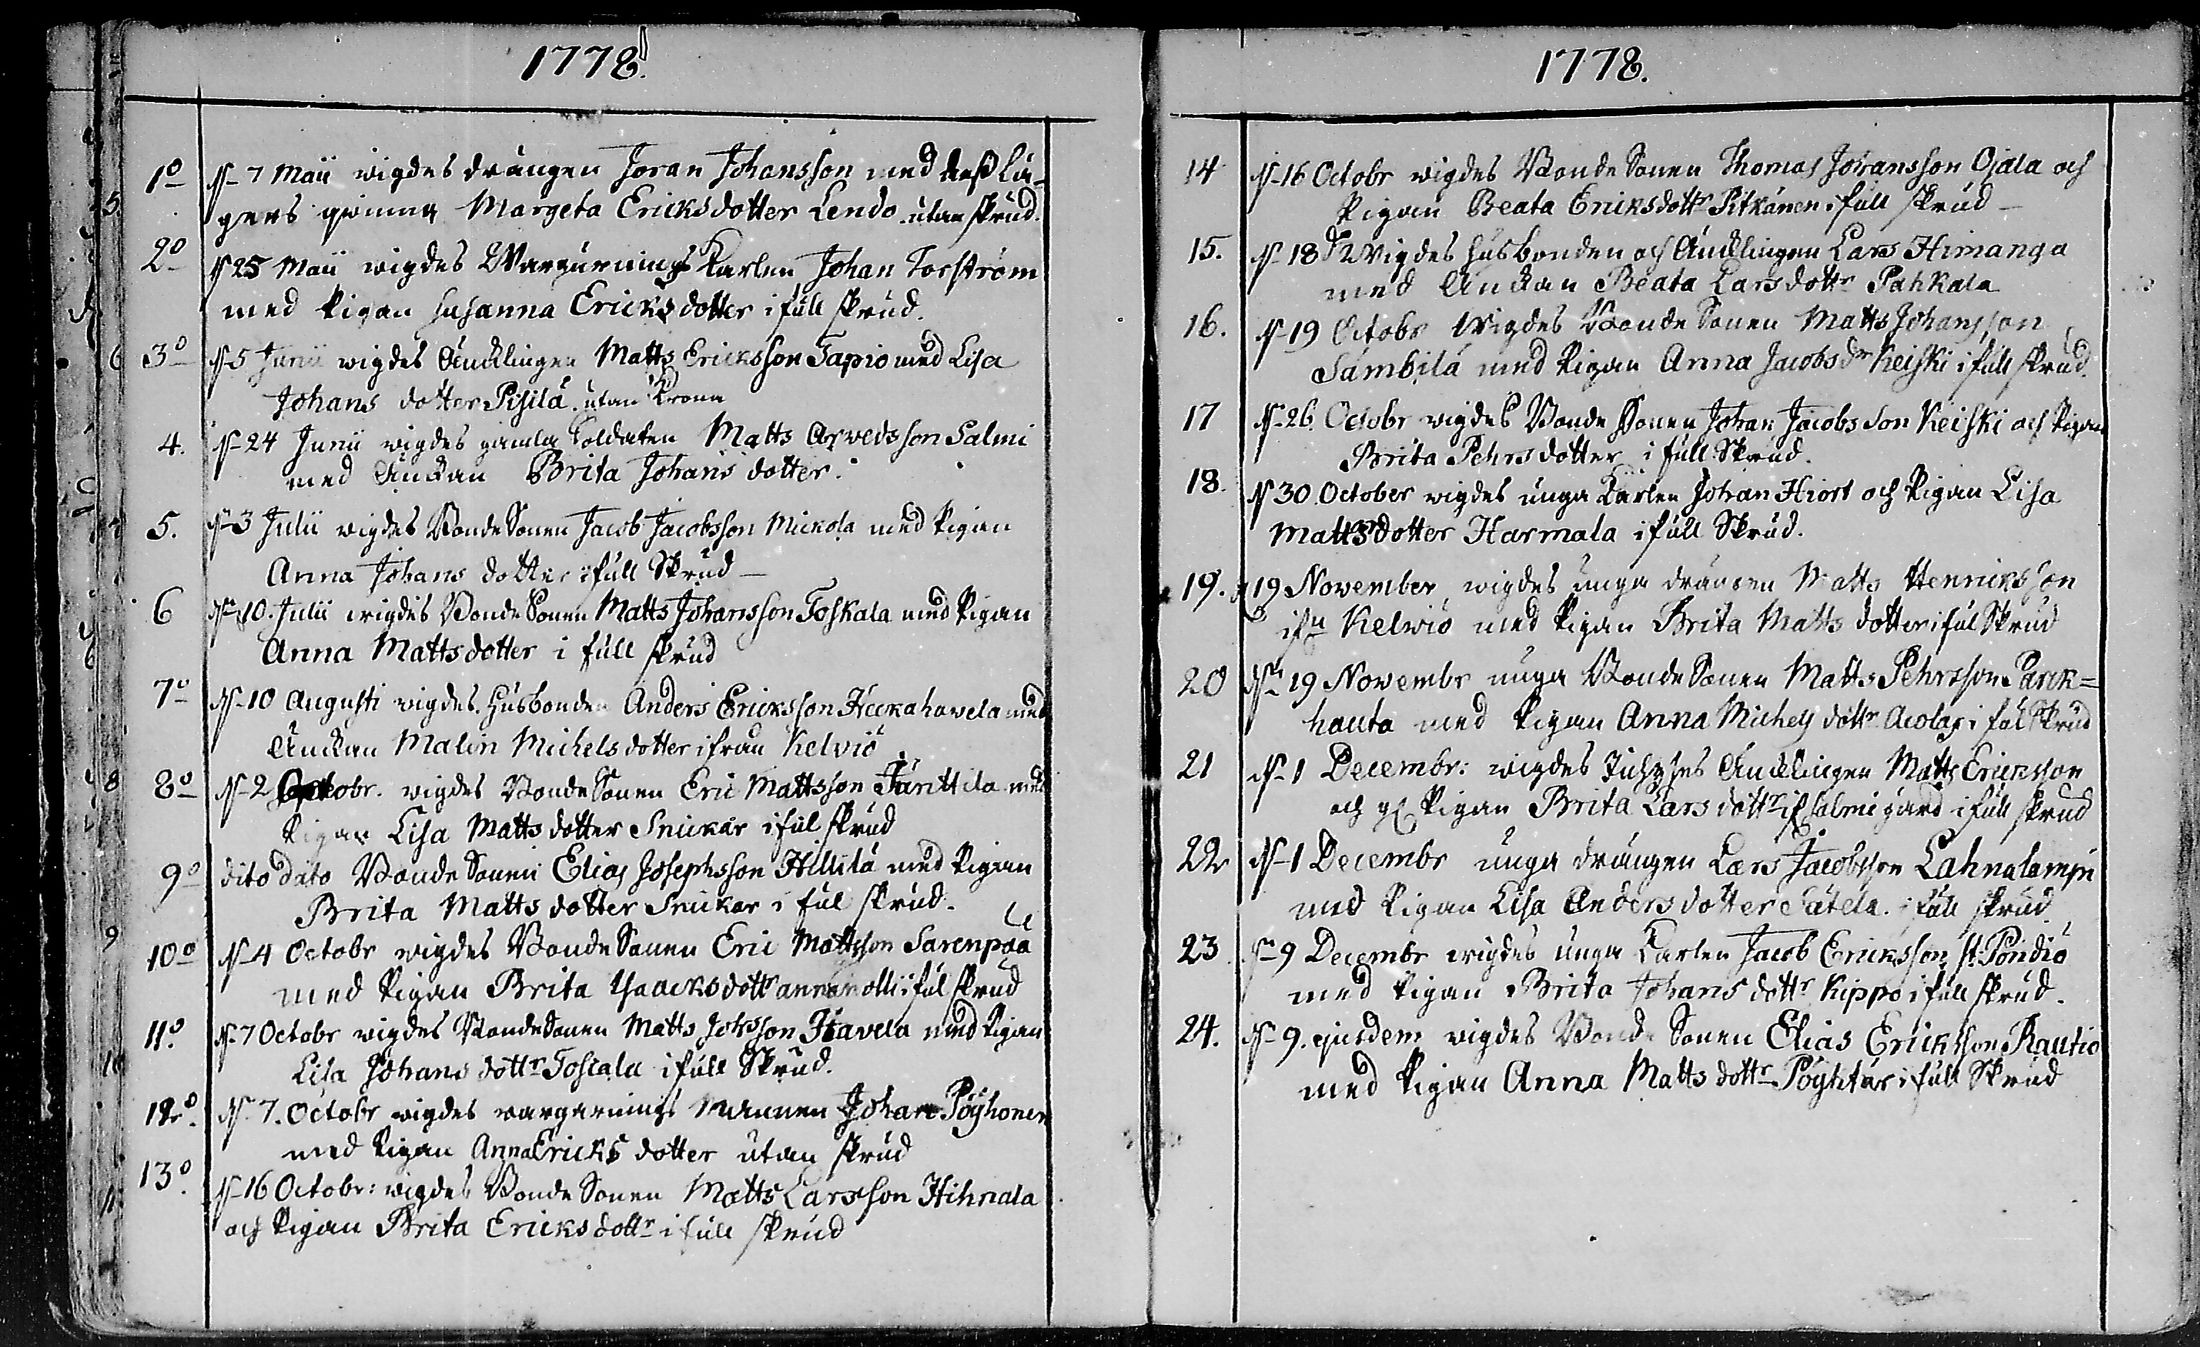 1778.
1º d. 7 Maii wigdes drängen Joran Johansson med dess Lä-
gers qwinna Margeta Ericksdotter Lendo utan skrud.
2º d. 25 Maii wigdes Wargierings Karlen Johan Torström
med Pigan Susanna Ericksdotter i full skrud.
3º d. 5 Junii wigdes Äncklingen Matts Ericksson Tapio med Lisa
Johans dotter Pisilä utan Krona
4. d. 24 Junii wigdes gamla Soldaten Matts Arvedsson Salmi
med Änckan Brita Johans dotter.
5. d. 3 Julii wigdes Bonde Sonen Jacob Jacobsson Mickola med Pigan
Anna Johans dotter i full Skrud
6 d. 10. Julii wigdes Bonde Sonen Matts Johansson Toskala med Pigan
Anna Mattsdotter i full skrud
7º d. 10 Augusti wigdes Husbonden Anders Ericksson Heckahavela med
Änckan Malin Michelsdotter ifrån Kelviö
8º d. 2 Octobr. wigdes Bonde Sonen Eric Mattsson Jürittila med
Pigan Lisa Matts dotter Snickar i ful skrud
9º dito dato Bonde Sonen Elias Josephsson Hillilä med Pigan
Brita Matts dotter Snickar i ful skrud.
10º d. 4 Octobr wigdes Bonde Sonen Eric Mattsson Sarenpää
med Pigan Brita Isaacksdottr annamolli i ful skrud
11º d. 7 Octobr wigdes Bonde Sonen Matts Johsson Havela med Pigan
Lisa Johans dottr Toscala i full Skrud.
12º. d. 7. Octobr wigdes wargerings Mannen Johan Pöyhonen
med Pigan Anna Ericks dotter utan skrud
13º. d. 16 Octobr: wigdes Bonde Sonen Matts Larsson Hihnala
och Pigan Brita Ericksdottr i full skrud
1778.
14 d. 16 Octobr wigdes Bonde Sonen Thomas Johansson Ojala och
Pigan Beata Eriksdottr Pitkänen i full skrud
15. d. 18 wigdes Husbonden och Äncklingen Lars Himanga
med Änckan Beata Larsdottr Pahkala
16. d. 19 Octobr wigdes Bonde Sonen Matts Johansson
Sämbilä med Pigan Anna Jacobsdr Keiski i full skrud.
17 d. 26. Octobr wigdes Bonde Sonen Johan Jacobsson Keiski och Pigan
Brita Pehrsdotter i full Skrud.
18. d. 30 October wigdes unga Karlen Johan Hiort och Pigan Lisa
Mattsdotter Harmala i full Skrud.
19. d. 19 November wigdes unga drängen Matts Henricksson
ifn Kelwiö med Pigan Brita Matts dotter i ful Skrud
20 dn 19 Novembr unga Bonde Sonen Matts Pehrsson Parck=
hauta med Pigan Anna Michels dottr Acolax i ful Skrud
21 d. 1 Decembr: wigdes Äncklingen Matts Ericksson
och Pigan Brita Larsdottr if Salmi gård i full skrud
22 d. 1 Decembr unga drängen Lars Jacobsson Lahnalampi
med Pigan Lisa Anders dotter Sätela i full skrud
23 d. 9 Decembr wigdes unga Karlen Jacob Ericksson st. Pöndiö
med Pigan Brita Johans dottr Kippo i full skrud.
24. d. 9. ejusdem wigdes Bonde Sonen Elias Ericksson Rautio
med Pigan Anna Matts dottr Pöyhtär i full Skrud